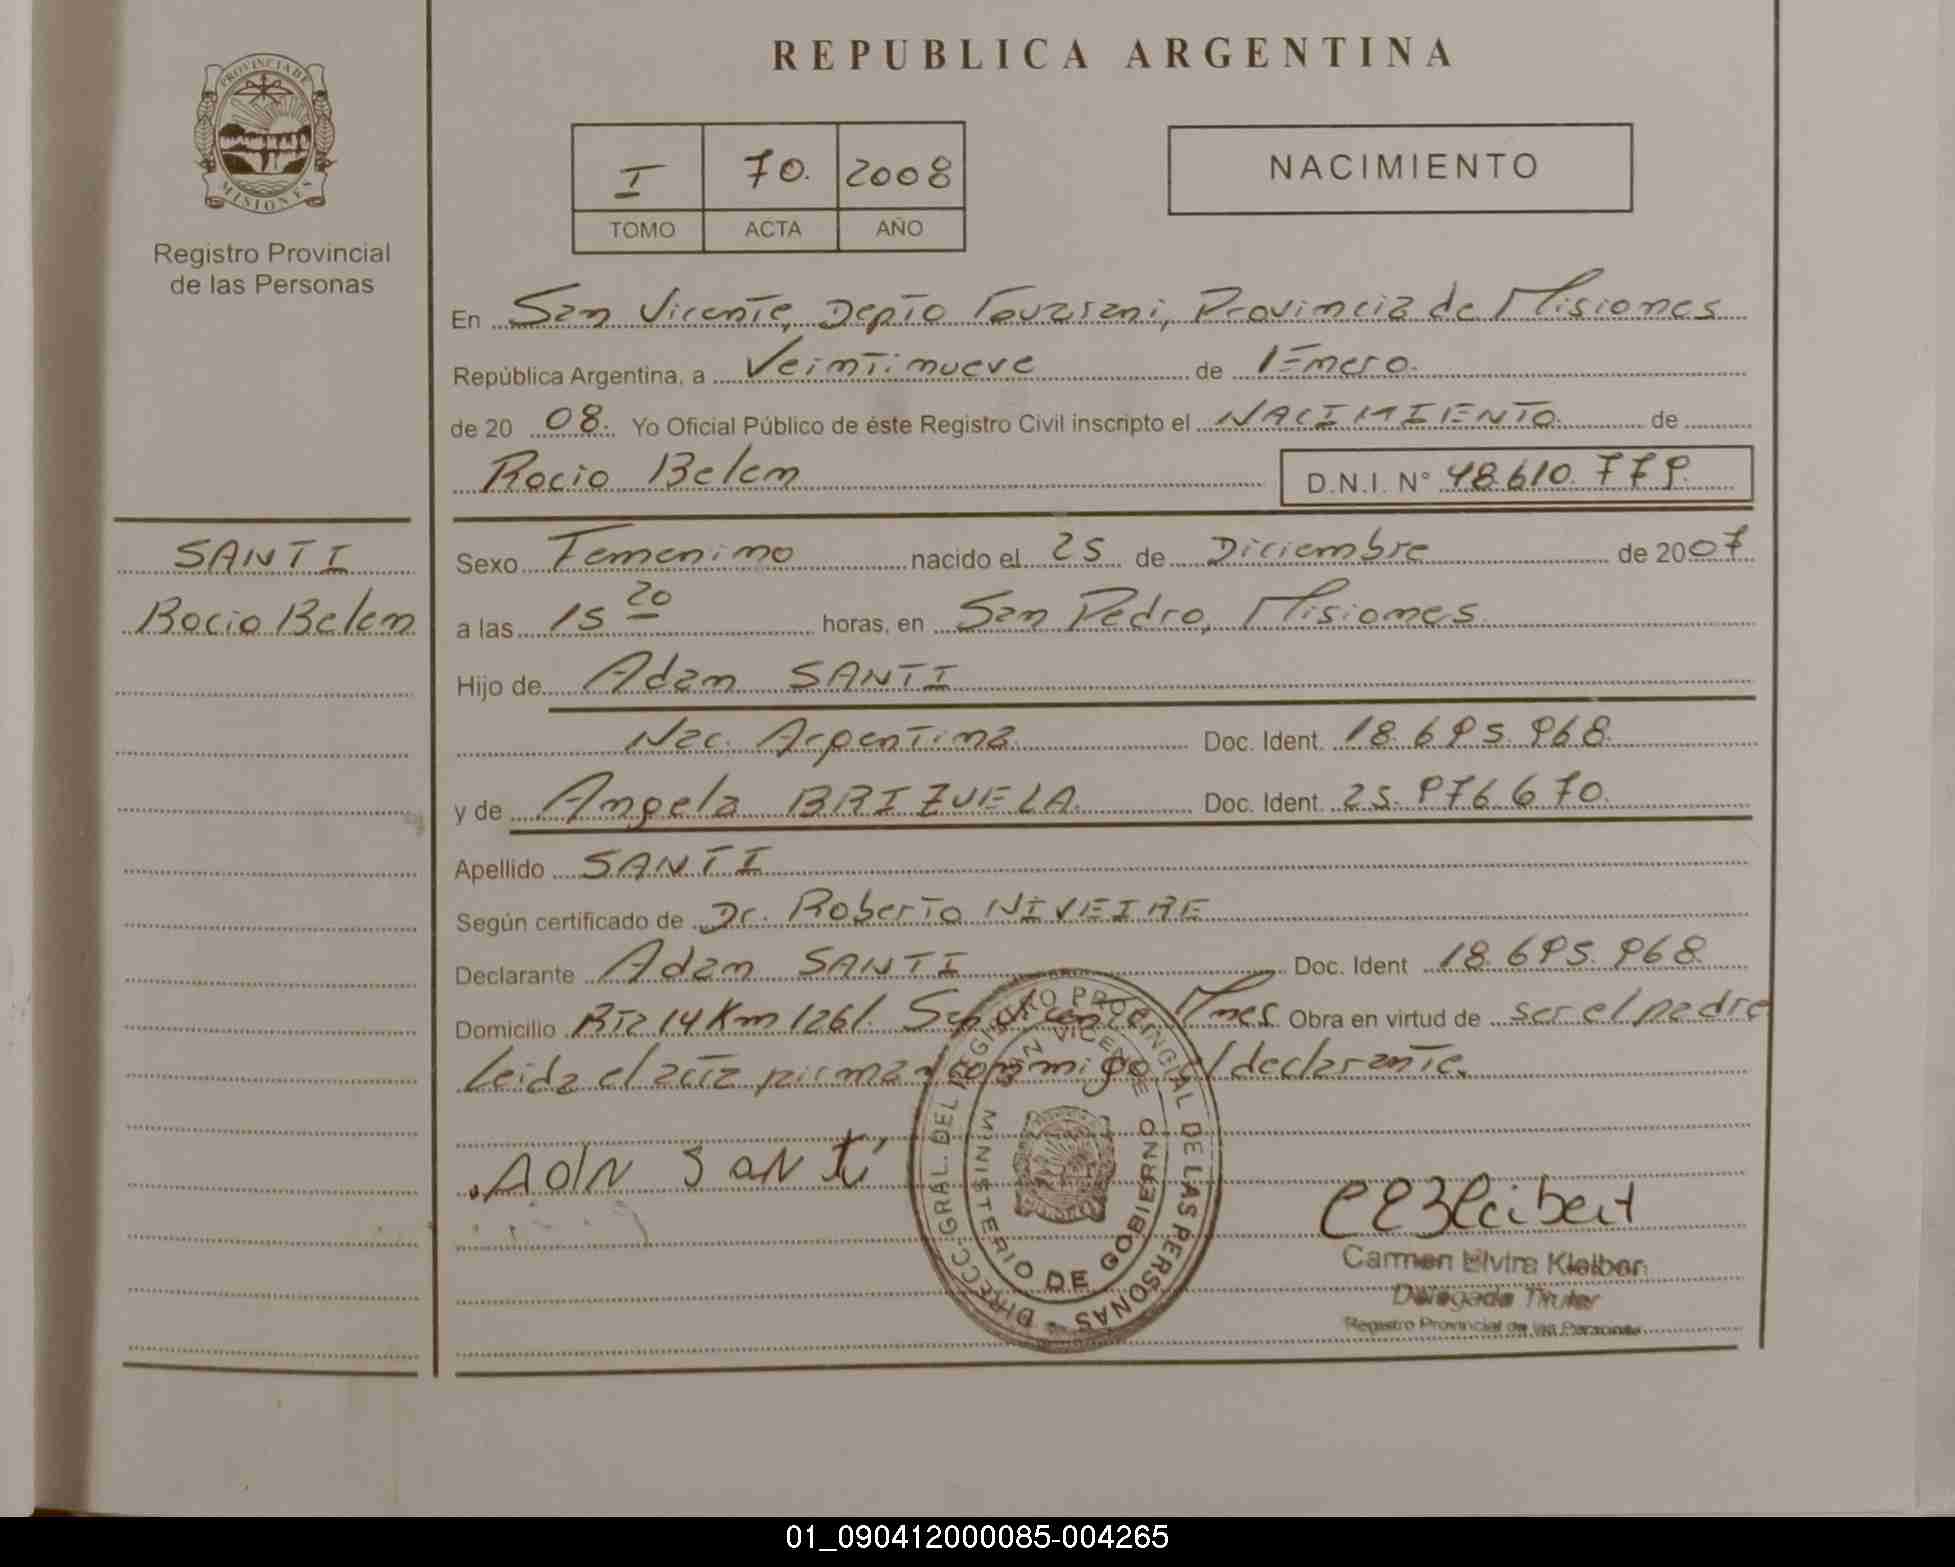 REPUBLICA ARGENTINA
PROVINCIA DE MISIONES
Registro Provincial
de las Personas
I 70. 2008
TOMO ACTA AÑO
NACIMIENTO
En San Vicente, Depto Guarani, Provincia de Misiones
República Argentina, a Veintinueve de Enero.
de 20 08. Yo Oficial Público de éste Registro Civil inscripto el NACIMIENTO de
Rocio Belen D.N.I. N° 48.610.779.
SANTI
Rocio Belen
Sexo Femenino nacido el 25 de Diciembre de 2007
a las 15 20 horas, en San Pedro, Misiones.
Hijo de Adan SANTI
Nac. Argentina Doc. Ident. 18.695.968.
y de Angela BRIZUELA. Doc. Ident. 25.976.670.
Apellido SANTI
Según certificado de Dr. Roberto NIVEIRE
Declarante Adan SANTI Doc. Ident 18.695.968.
Domicilio Rta 14 Km 1261. San Vicente, Mnes Obra en virtud de ser el padre
Leida el acta firman conmigo, el declarante.
ADIN SANTi
Carmen Elvira Kleiber
Delegada Titular
Registro Provincial de las Personas
DIRECC. GRAL. DEL REGISTRO PROVINCIAL DE LAS PERSONAS
SAN VICENTE
MINISTERIO DE GOBIERNO
01_090412000085-004265